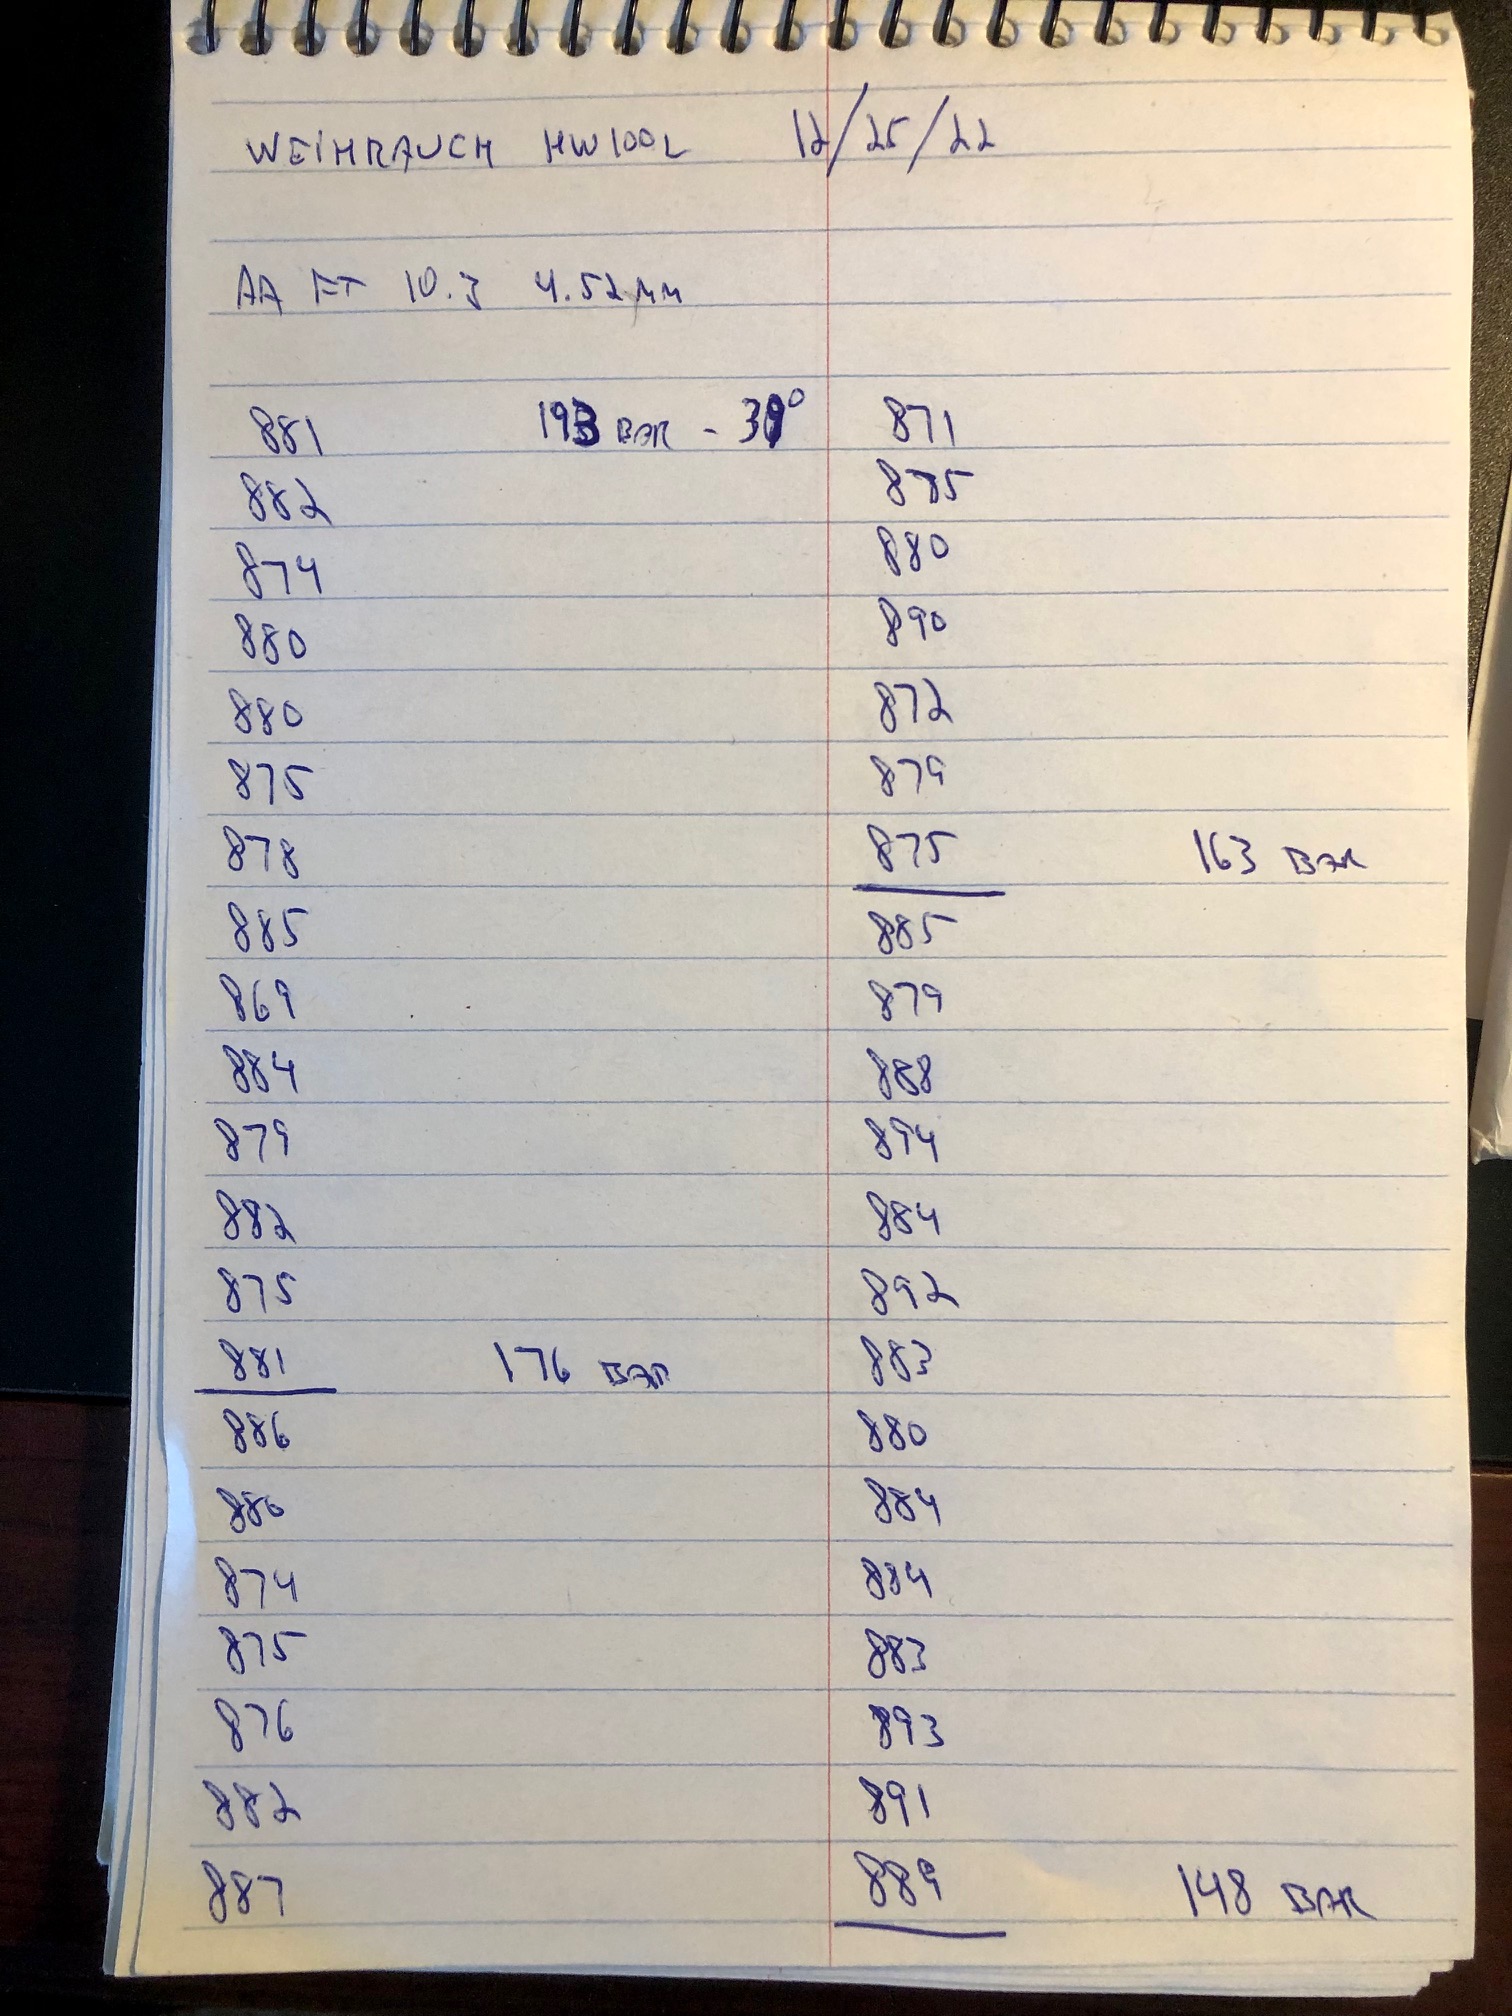 WEIHRAUCH HW100L 12/25/22
AA FT 10.3 4.52MM
881 193 BAR -
882
874
880
880
875
878
885
869
884
879
882
875
881 176 BAR
886
880
874
875
876
882
887
871
875
880
890
872
879
875 163 BAR
885
879
888
894
884
892
883
880
884
884
883
893
891
889 148 BAR